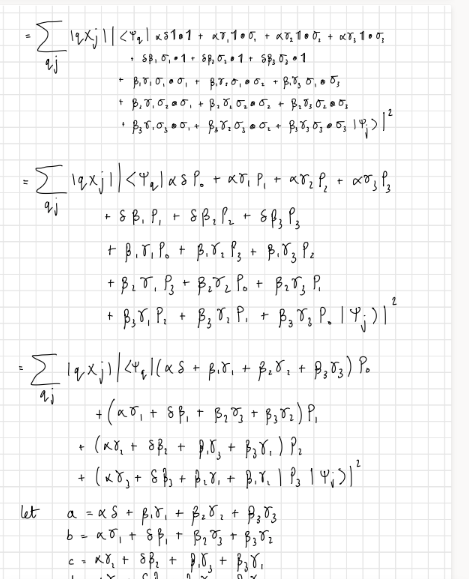 = Σ_{qj} |q⟩⟨j| |⟨ψ_q| αδ 1⊗1 + αγ₁ 1⊗σ₁ + αγ₂ 1⊗σ₂ + αγ₃ 1⊗σ₃
+ δβ₁ σ₁⊗1 + δβ₂ σ₂⊗1 + δβ₃ σ₃⊗1
+ β₁γ₁ σ₁⊗σ₁ + β₁γ₂ σ₁⊗σ₂ + β₁γ₃ σ₁⊗σ₃
+ β₂γ₁ σ₂⊗σ₁ + β₂γ₂ σ₂⊗σ₂ + β₂γ₃ σ₂⊗σ₃
+ β₃γ₁ σ₃⊗σ₁ + β₃γ₂ σ₃⊗σ₂ + β₃γ₃ σ₃⊗σ₃ |ψ_j⟩|²
= Σ_{qj} |q⟩⟨j| |⟨ψ_q| αδ P₀ + αγ₁ P₁ + αγ₂ P₂ + αγ₃ P₃
+ δβ₁ P₁ + δβ₂ P₂ + δβ₃ P₃
+ β₁γ₁ P₀ + β₁γ₂ P₃ + β₁γ₃ P₂
+ β₂γ₁ P₃ + β₂γ₂ P₀ + β₂γ₃ P₁
+ β₃γ₁ P₂ + β₃γ₂ P₁ + β₃γ₃ P₀ |ψ_j⟩|²
= Σ_{qj} |q⟩⟨j| |⟨ψ_q| (αδ + β₁γ₁ + β₂γ₂ + β₃γ₃) P₀
+ (αγ₁ + δβ₁ + β₂γ₃ + β₃γ₂) P₁
+ (αγ₂ + δβ₂ + β₁γ₃ + β₃γ₁) P₂
+ (αγ₃ + δβ₃ + β₂γ₁ + β₁γ₂ | P₃ |ψ_j⟩|²
let a = αδ + β₁γ₁ + β₂γ₂ + β₃γ₃
b = αγ₁ + δβ₁ + β₂γ₃ + β₃γ₂
c = αγ₂ + δβ₂ + β₁γ₃ + β₃γ₁